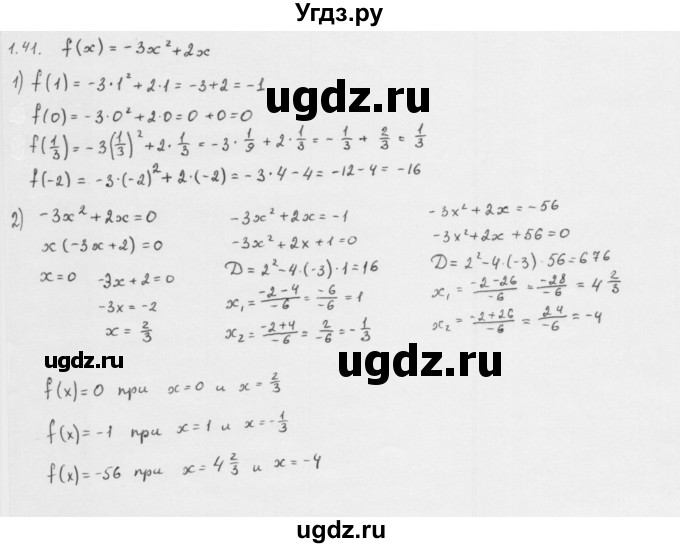 Угдз.ру
1.41. f(x) = -3x² + 2x
1) f(1) = -3·1² + 2·1 = -3+2 = -1
f(0) = -3·0² + 2·0 = 0 + 0 = 0
f(1/3) = -3(1/3)² + 2·1/3 = -3·1/9 + 2·1/3 = -1/3 + 2/3 = 1/3
f(-2) = -3·(-2)² + 2·(-2) = -3·4 - 4 = -12 - 4 = -16
2) -3x² + 2x = 0
x(-3x+2) = 0
x = 0 -3x + 2 = 0
-3x = -2
x = 2/3
-3x² + 2x = -1
-3x² + 2x + 1 = 0
D = 2² - 4·(-3)·1 = 16
x₁ = (-2-4)/-6 = -6/-6 = 1
x₂ = (-2+4)/-6 = 2/-6 = -1/3
-3x² + 2x = -56
-3x² + 2x + 56 = 0
D = 2² - 4·(-3)·56 = 676
x₁ = (-2-26)/-6 = -28/-6 = 4 2/3
x₂ = (-2+26)/-6 = 24/-6 = -4
f(x) = 0 при x = 0 и x = 2/3
f(x) = -1 при x = 1 и x = -1/3
f(x) = -56 при x = 4 2/3 и x = -4
ugdz.ru
ugdz.ru
ugdz.ru
ugdz.ru
ugdz.ru
ugdz.ru